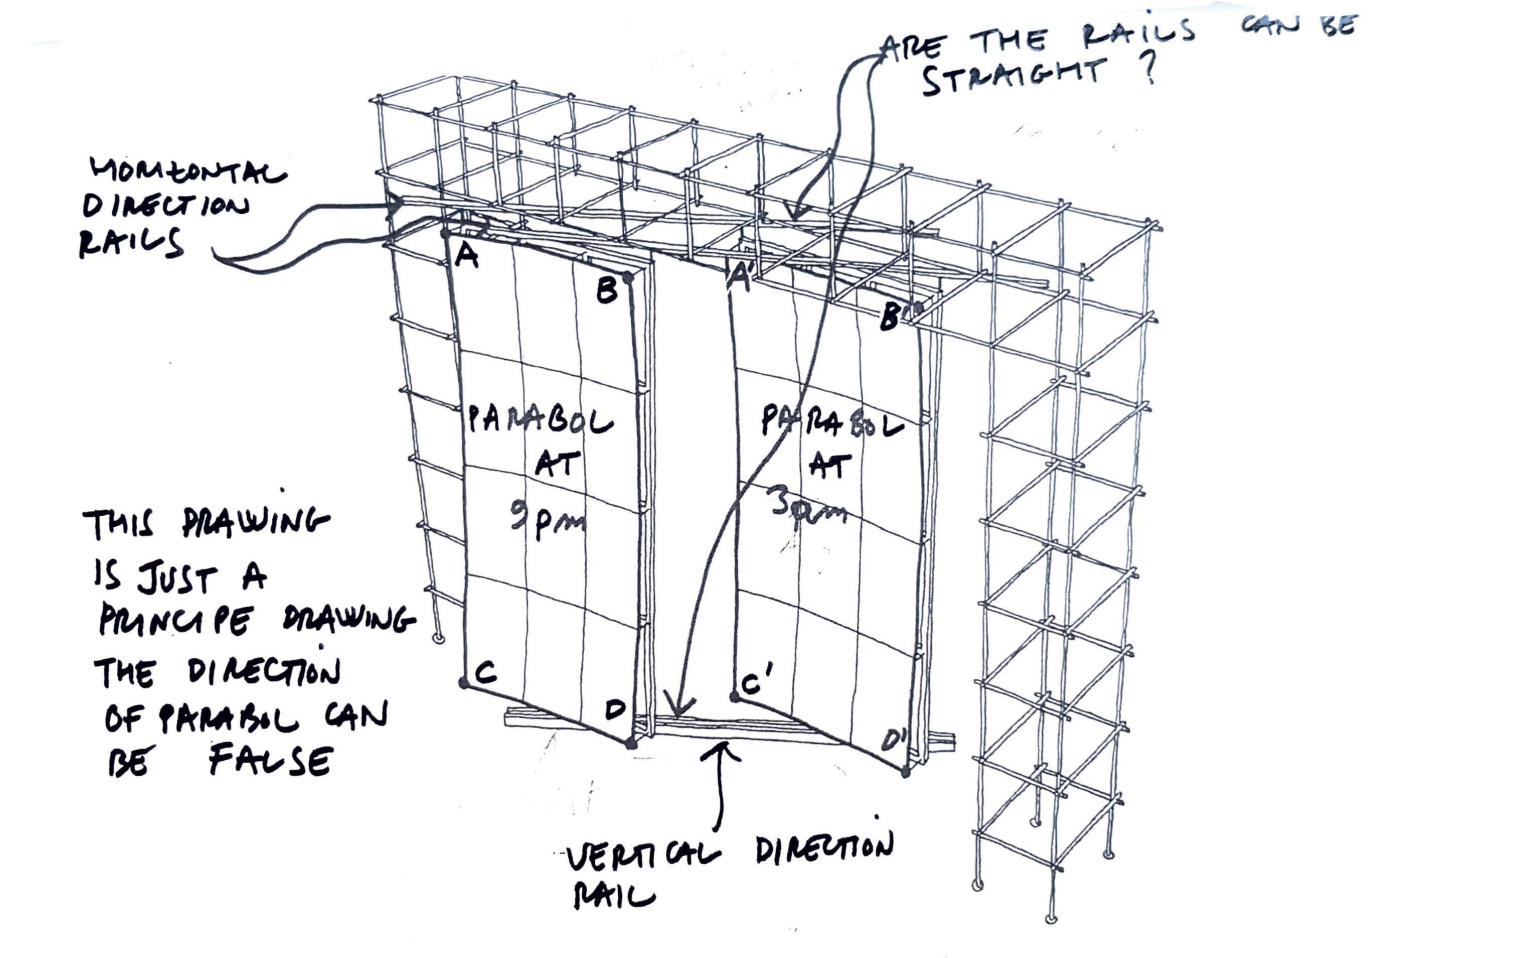 ARE THE RAILS CAN BE
STRAIGHT ?
HORIZONTAL
DIRECTION
RAILS
A
B
A'
B'
PARABOL
AT
9pm
PARABOL
AT
3pm
THIS DRAWING
IS JUST A
PRINCIPE DRAWING
THE DIRECTION
OF PARABOL CAN
BE FALSE
C
D
C'
D'
VERTICAL DIRECTION
RAIL